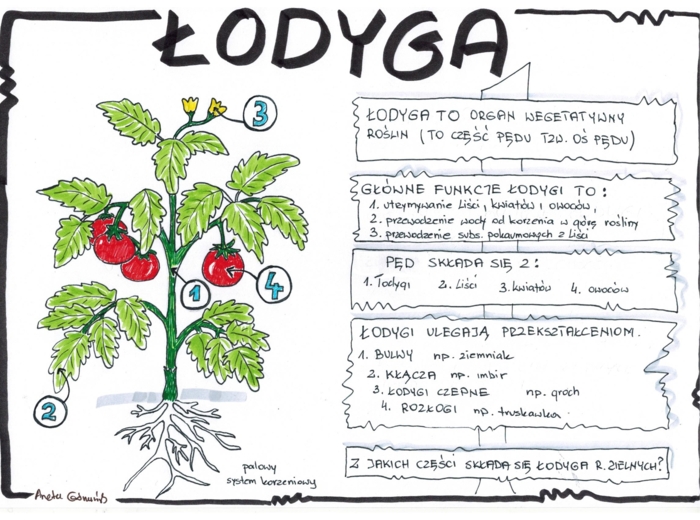 ŁODYGA
3
1
4
2
palowy
system korzeniowy
ŁODYGA TO ORGAN WEGETATYWNY
ROŚLIN (TO CZĘŚĆ PĘDU TZW. OŚ PĘDU)
GŁÓWNE FUNKCJE ŁODYGI TO:
1. utrzymywanie liści, kwiatów i owoców,
2. przewodzenie wody od korzenia w górę rośliny
3. przewodzenie subs. pokarmowych z liści
PĘD SKŁADA SIĘ Z:
1. łodygi 2. liści 3. kwiatów 4. owoców
ŁODYGI ULEGAJĄ PRZEKSZTAŁCENIOM.
1. BULWY np. ziemniak
2. KŁĄCZA np. imbir
3. ŁODYGI CZEPNE np. groch
4. ROZŁOGI np. truskawka.
Z JAKICH CZĘŚCI SKŁADA SIĘ ŁODYGA R. ZIELNYCH?
Aneta